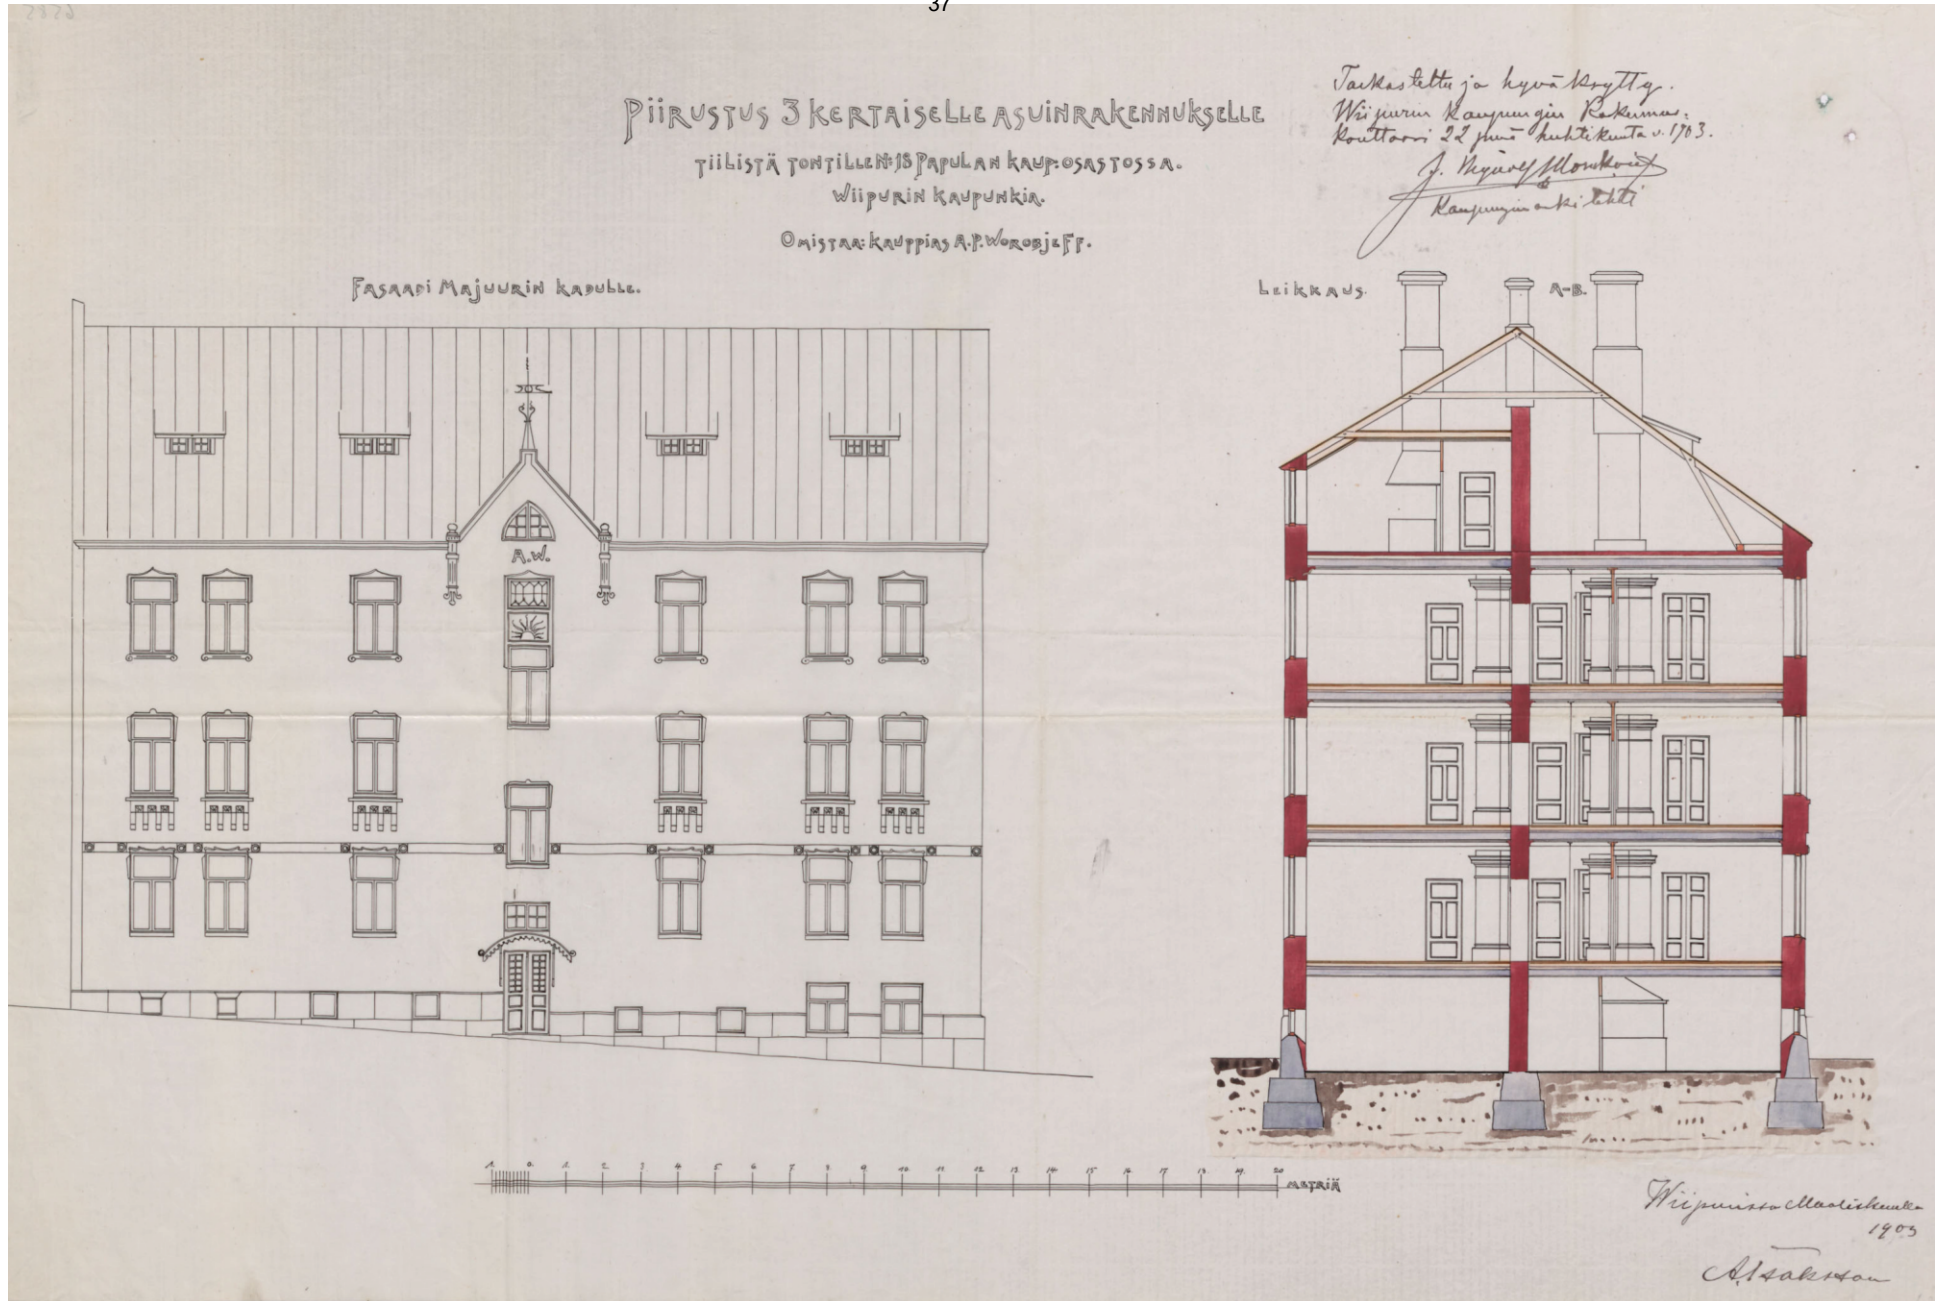 37
PIIRUSTUS 3 KERTAISELLE ASUINRAKENNUKSELLE
TIILISTÄ TONTILLE N:18 PAPULAN KAUP:OSASTOSSA.
WIIPURIN KAUPUNKIA.
OMISTAA: KAUPPIAS A.P. WOROBJEFF.
Tarkastettu ja hyväksytty.
Wiipurin Kaupungin Rakennus-
konttori 22 huhtikuuta v. 1903.
Kaupunginarkitehti
FASAADI MAJUURIN KADULLE.
LEIKKAUS. A-B.
A.W.
1 0 1 2 3 4 5 6 7 8 9 10 11 12 13 14 15 16 17 18 19 20 METRIÄ
Wiipurissa Maaliskuulla
1903
A. Isaksson